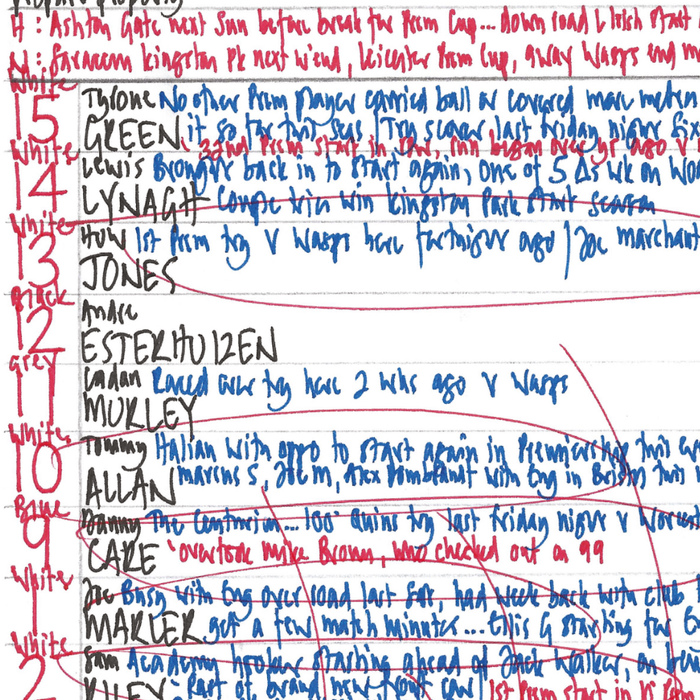 H: Ashton Gate next Sun before break for Prem Cup... down road L Irish start
N: Saracens Kingston Pk next w'end, Leicester Prem Cup, away Wasps end
White
15 Tyrone No other Prem player carried ball or covered more metres
GREEN it so far this seas | Try scorer last Friday night
White 22nd Prem start in row, run began over yr ago v
14 Lewis Brought back in to start again, one of 5 Δs wk on
LYNAGH Couple tries win Kingston Park start season
White
13 Huw 1st Prem try v Wasps here fortnight ago | Joe Marchant
JONES
Black
12 Andre
ESTERHUIZEN
Grey
11 Cadan Raced over try here 2 wks ago v Wasps
MURLEY
White
10 Tommy Italian with oppo to start again in Premiership this
ALLAN Marcus S, Joe M, Alex Dombrandt with Eng in this
Blue
9 Danny The Centurion... 100th Quins try last Friday night v
CARE overtook Mike Brown, who checked out on 99
White
1 Joe Busy with Eng over road last Sat, had week back with club
MARLER get a few match minutes... this G starting for
White
2 Sam Academy hooker starting ahead of Jack Walker, on
RILEY Part of brand new front row | 1st Prem start in